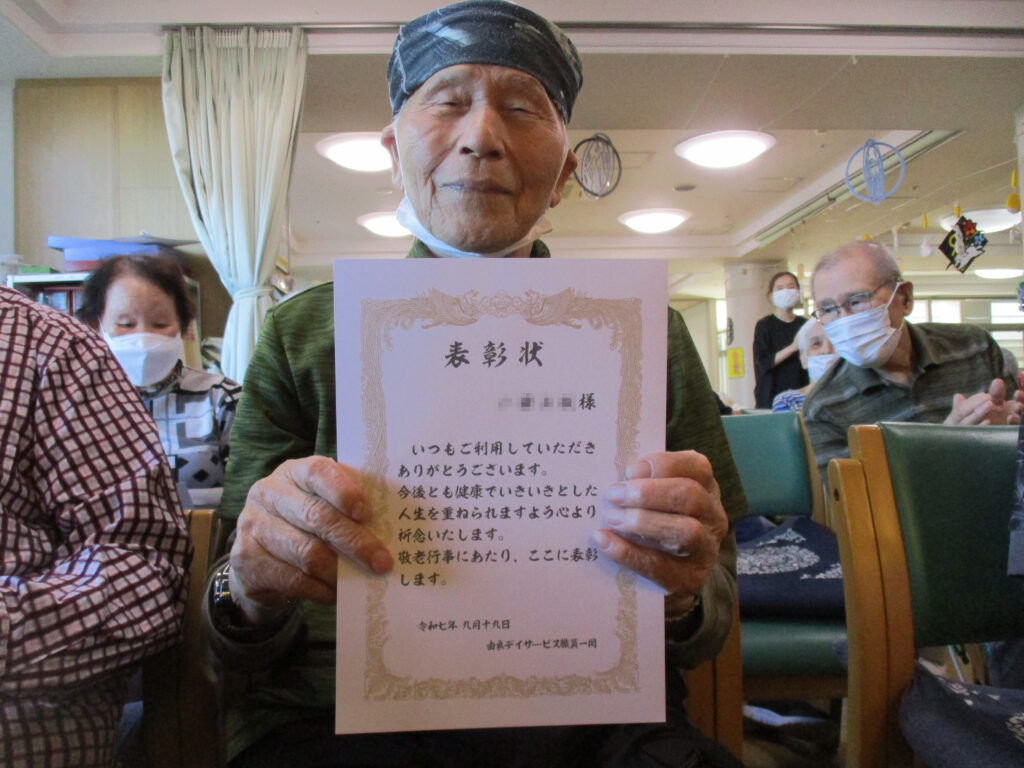 表彰状
様
いつもご利用していただき
ありがとうございます。
今後とも健康でいきいきとした
人生を重ねられますよう心より
祈念いたします。
敬老行事にあたり、ここに表彰
します。
令和七年 九月十九日
由良デイサービス職員一同